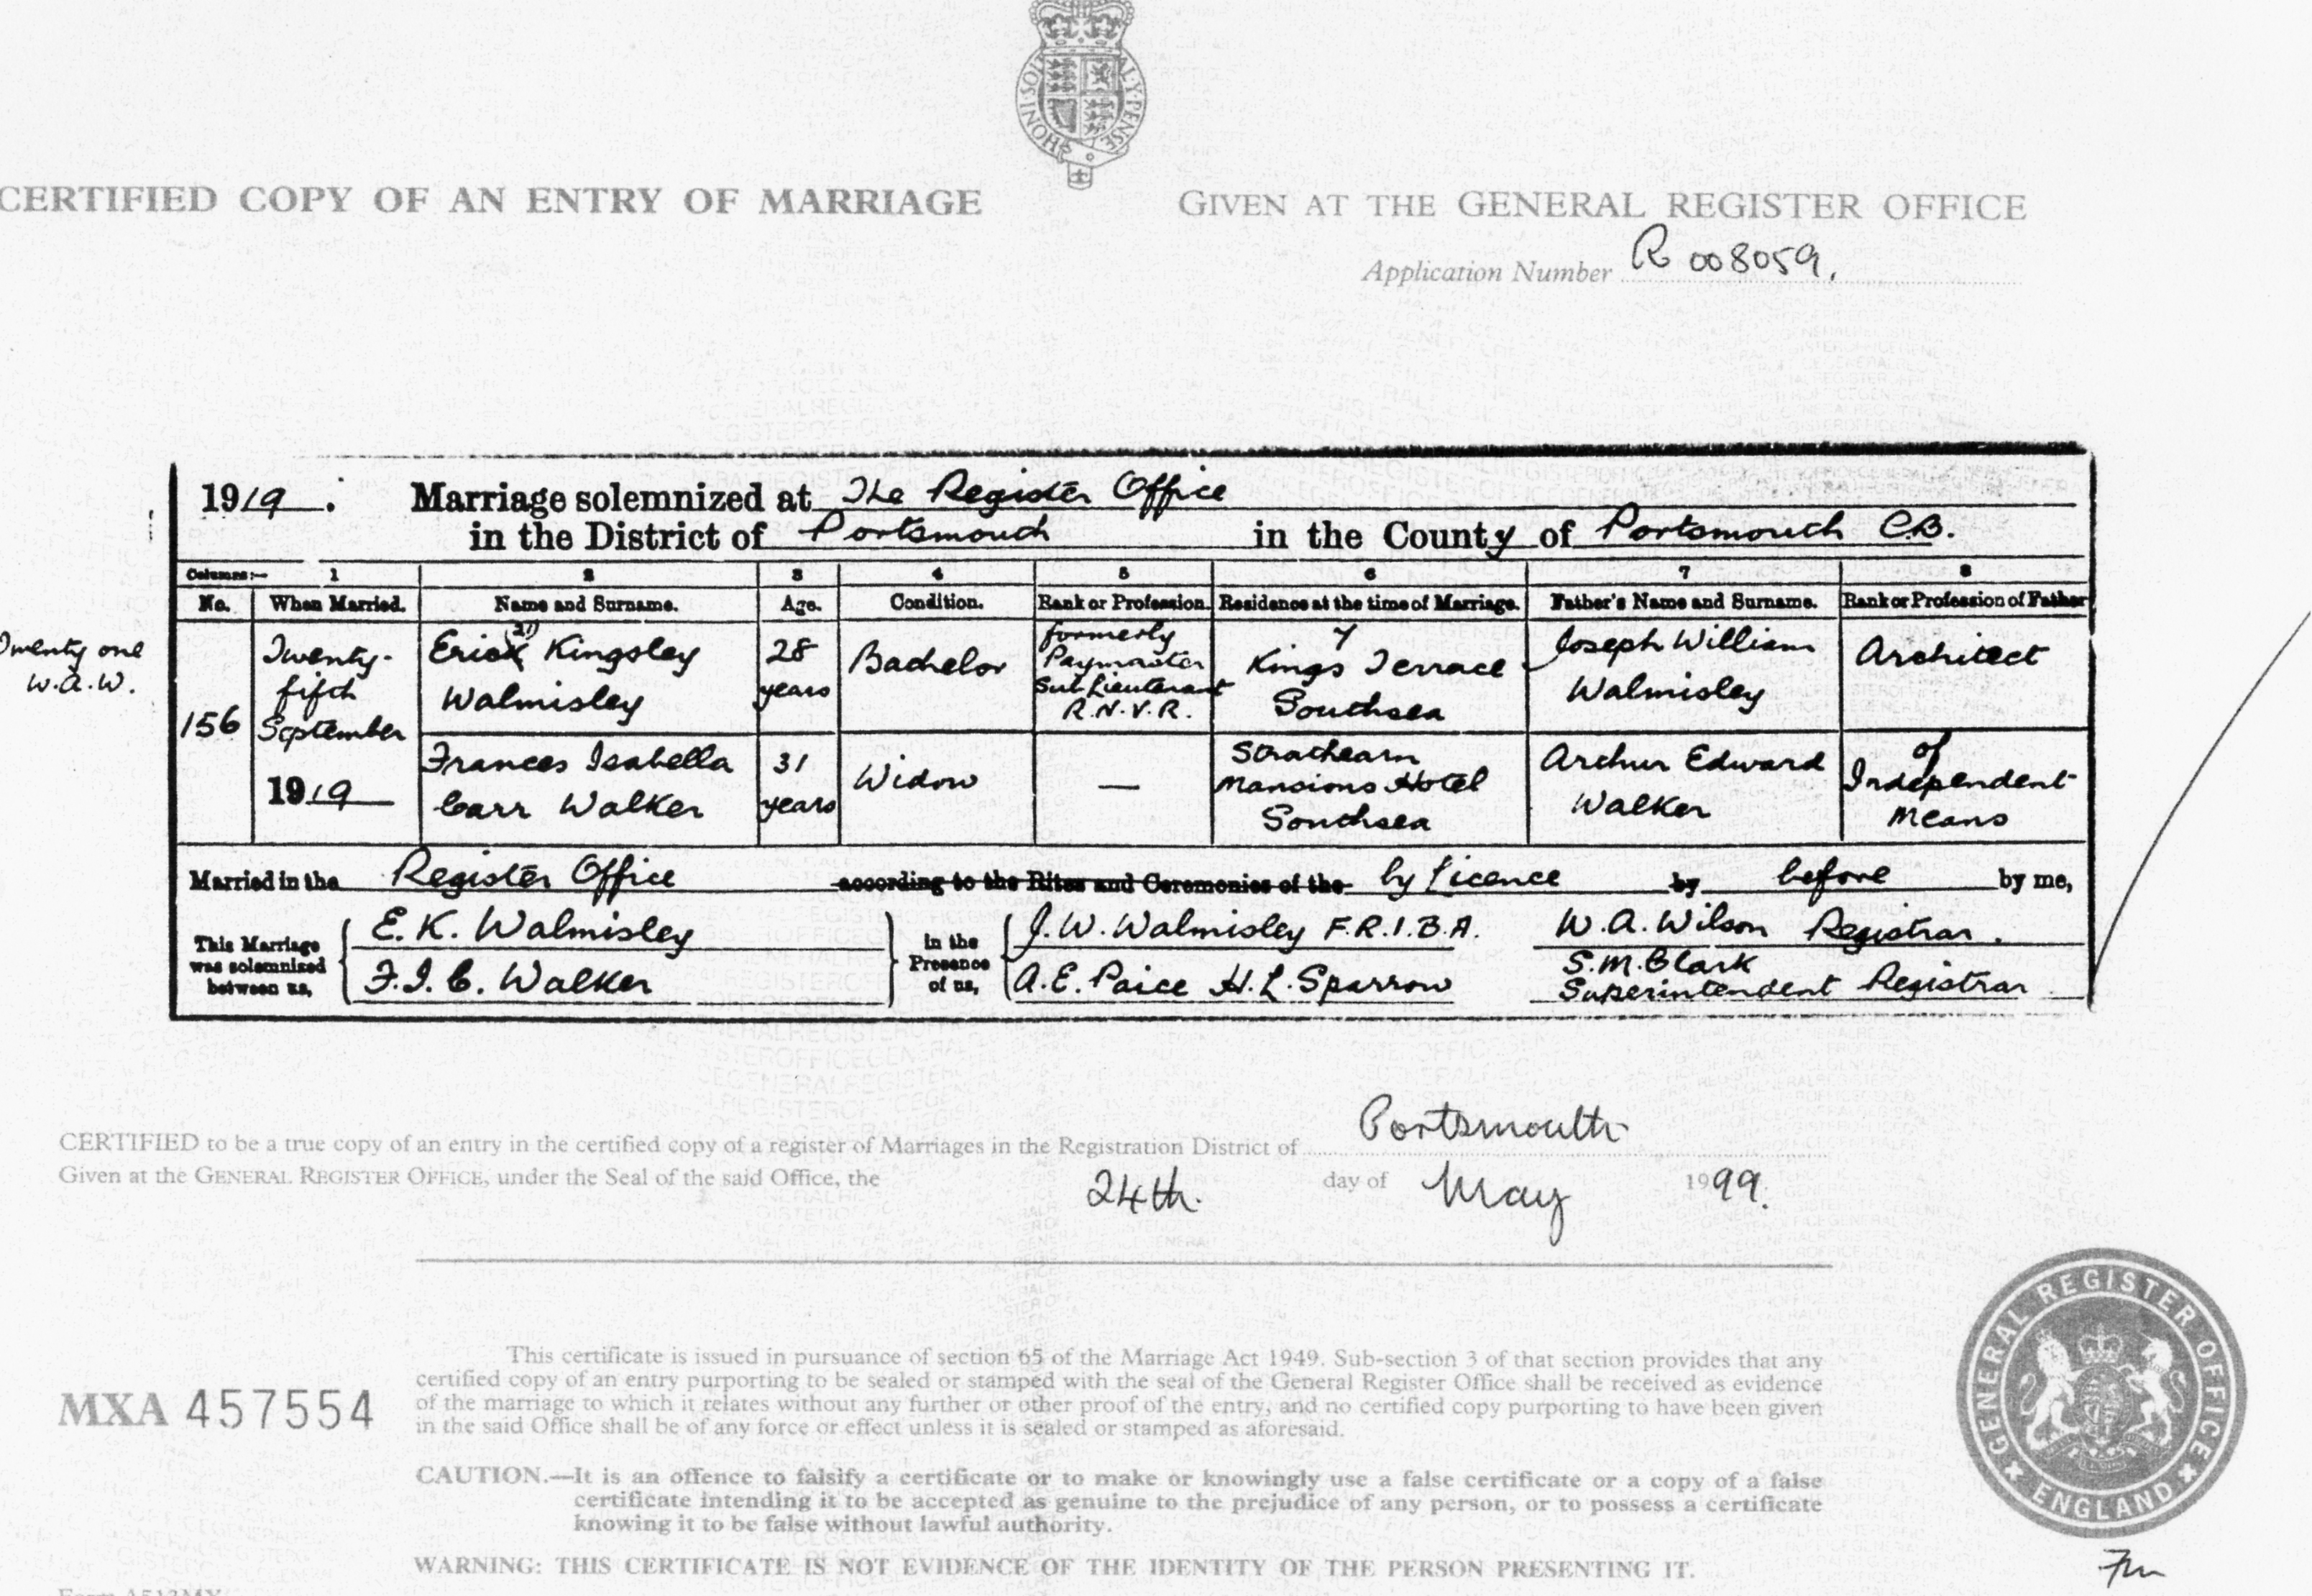 HONI SOIT QUI MAL Y PENSE
CERTIFIED COPY OF AN ENTRY OF MARRIAGE
GIVEN AT THE GENERAL REGISTER OFFICE
Application Number R 008059.
1919. Marriage solemnized at The Register Office
in the District of Portsmouth in the County of Portsmouth C.B.
Columns:— 1 2 3 4 5 6 7 8
No. When Married. Name and Surname. Age. Condition. Rank or Profession. Residence at the time of Marriage. Father's Name and Surname. Rank or Profession of Father
Twenty one
W.A.W.
156
Twenty-
fifth
September
1919
(21)
Erick Kingsley
Walmisley
28
years
Bachelor
formerly
Paymaster
Sub Lieutenant
R.N.V.R.
7
Kings Terrace
Southsea
Joseph William
Walmisley
Architect
Frances Isabella
Carr Walker
31
years
Widow
—
Strathearn
Mansions Hotel
Southsea
Arthur Edward
Walker
of
Independent
Means
Married in the Register Office according to the Rites and Ceremonies of the by Licence by before by me,
This Marriage
was solemnized
between us,
E. K. Walmisley
F. I. C. Walker
in the
Presence
of us,
J. W. Walmisley F.R.I.B.A.
A. E. Paice H. L. Sparrow
W. A. Wilson Registrar.
S. M. Clark
Superintendent Registrar
CERTIFIED to be a true copy of an entry in the certified copy of a register of Marriages in the Registration District of Portsmouth
Given at the GENERAL REGISTER OFFICE, under the Seal of the said Office, the 24th. day of May 1999.
This certificate is issued in pursuance of section 65 of the Marriage Act 1949. Sub-section 3 of that section provides that any
certified copy of an entry purporting to be sealed or stamped with the seal of the General Register Office shall be received as evidence
of the marriage to which it relates without any further or other proof of the entry, and no certified copy purporting to have been given
in the said Office shall be of any force or effect unless it is sealed or stamped as aforesaid.
MXA 457554
CAUTION.—It is an offence to falsify a certificate or to make or knowingly use a false certificate or a copy of a false
certificate intending it to be accepted as genuine to the prejudice of any person, or to possess a certificate
knowing it to be false without lawful authority.
WARNING: THIS CERTIFICATE IS NOT EVIDENCE OF THE IDENTITY OF THE PERSON PRESENTING IT.
GENERAL REGISTER OFFICE
ENGLAND